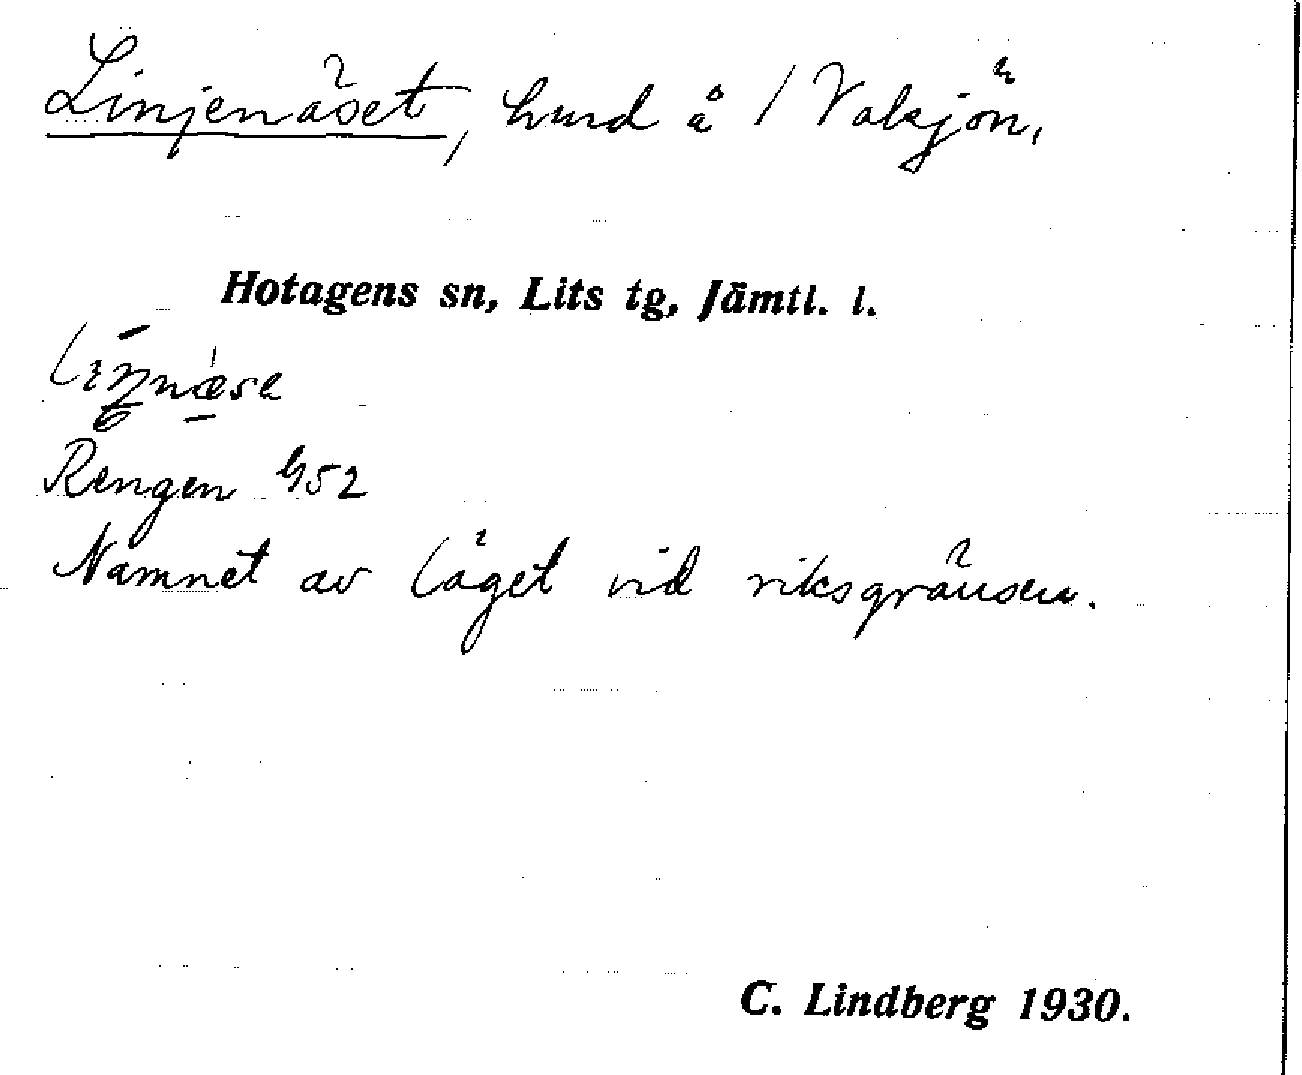 Linjenäset, hund å / Valsjön,
Hotagens sn, Lits tg, Jämtl. l.
Rengen 452
Namnet av läget vid riksgränsen.
C. Lindberg 1930.